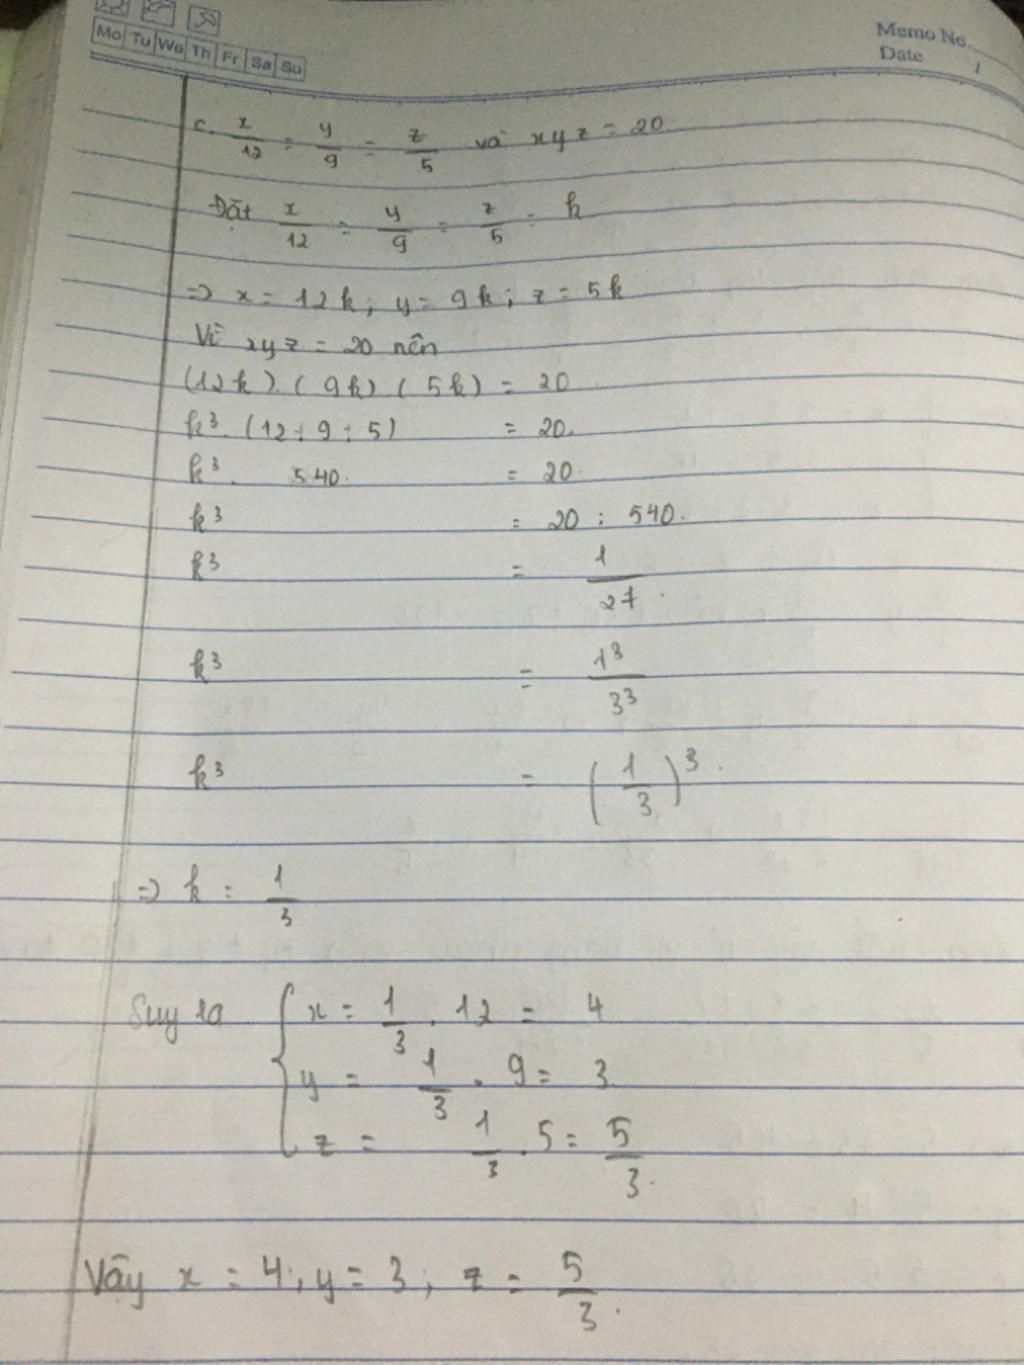 Mo Tu We Th Fr Sa Su
Memo No.
Date
c. x/12 = y/9 = z/5 và xyz = 20
Đặt x/12 = y/9 = z/5 = k
=> x = 12k; y = 9k; z = 5k
Vì xyz = 20 nên
(12k).(9k)(5k) = 20
k³.(12+9+5) = 20.
k³. 540. = 20.
k³ = 20 : 540.
k³ = 1/27.
k³ = 1³/3³
k³ = (1/3)³.
=> k = 1/3
Suy ra { x = 1/3 . 12 = 4
y = 1/3 . 9 = 3
z = 1/3 . 5 = 5/3.
Vậy x = 4; y = 3; z = 5/3.